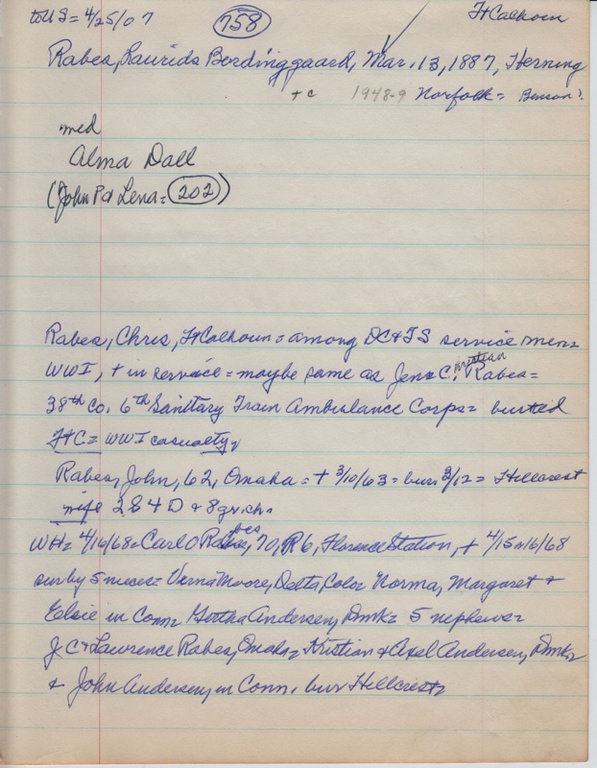 to US = 4/25/07 758 FtCalhoun
Rabes, Laurids Bordinggaard, Mar. 13, 1887, Herning
+ c 1948-9 Norfolk = Benson?
md
Alma Dall
(John P & Lena = 202)
Rabes, Chris, FtCalhoun = among DC & FS service men =
WWI, + in service = maybe same as Jens C. Kristian Rabes =
38th Co. 6th Sanitary Train Ambulance Corps = buried
FtC = WWI casualty,
Rabes, John, 62, Omaha = + 3/10/63 = bur 3/12 = Hillcrest
wife 2 S 4 D & 8 gr.ch.
WH = 4/16/68 = Carl O Rabes, 70, R 6, Florence Station, + 4/15 or 16/68
sur by 5 nieces = Verna Moore, Delta, Colo. Norma, Margaret &
Elsie in Conn = Gertha Andersen, Dmk = 5 nephews =
J C & Lawrence Rabes, Omaha = Kristian & Axel Andersen, Dmk =
& John Andersen, in Conn, bur Hillcrest